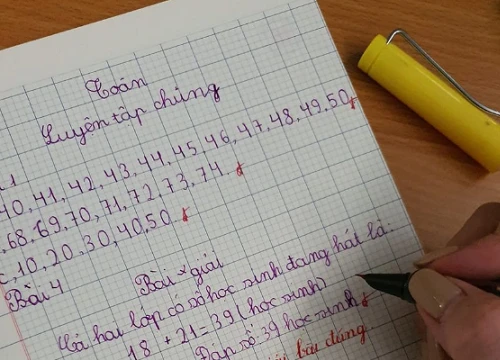 Toán
Luyện tập chung
1
40, 41, 42, 43, 44, 45, 46, 47, 48, 49, 50
, 68, 69, 70, 71, 72, 73, 74.
, 10, 20, 30, 40, 50.
Bài 4
Bài giải
Cả hai lớp có số học sinh đang hát là:
18 + 21 = 39 (học sinh)
Đáp số 39 học sinh
bài đúng